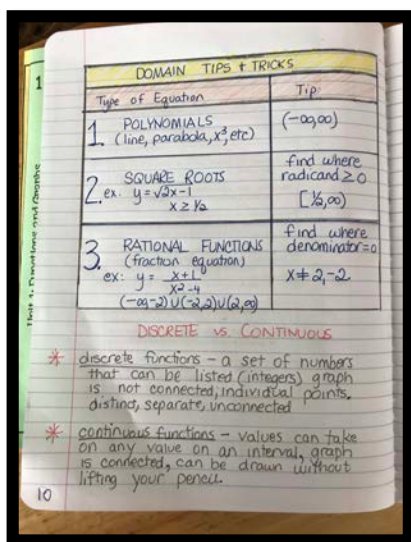 DOMAIN TIPS + TRICKS
Type of Equation
Tip
1. POLYNOMIALS
(line, parabola, x³, etc)
(-∞,∞)
2. SQUARE ROOTS
ex. y = √2x-1
x ≥ ½
find where
radicand ≥ 0
[½,∞)
3. RATIONAL FUNCTIONS
(fraction equation)
ex: y = x+1
x²-4
(-∞-2)∪(-2,2)∪(2,∞)
find where
denominator=0
x≠2,-2
DISCRETE vs. CONTINUOUS
* discrete functions - a set of numbers
that can be listed (integers) graph
is not connected, individual points.
distinct, separate, unconnected
* continuous functions - values can take
on any value on an interval, graph
is connected, can be drawn without
lifting your pencil.
10
1
Unit 1: Functions and Graphs